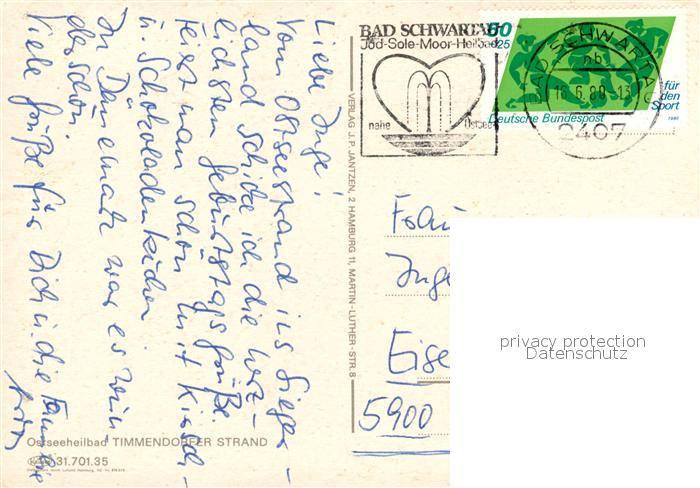 BAD SCHWARTAU
Jod-Sole-Moor-Heilbad
nahe Ostsee
60
+25
für
den
Sport
Deutsche Bundespost
1980
BAD SCHWARTAU
nb
16.6.80-13
2407
Liebe Inge!
Vom Ostseestrand ins Sieger-
land schicke ich die herz-
lichsten Geburtstagsgrüße.
feiert man schon mit Kirsch-
u. Schokoladenkuchen.
In Dänemark war es
Viele Grüße für Dich u. die Familie
VERLAG J. P. JANTZEN, 2 HAMBURG 11, MARTIN-LUTHER-STR. 8
Frau
Inge
Eise
5900
privacy protection
Datenschutz
Ostseeheilbad TIMMENDORFER STRAND
31.701.35